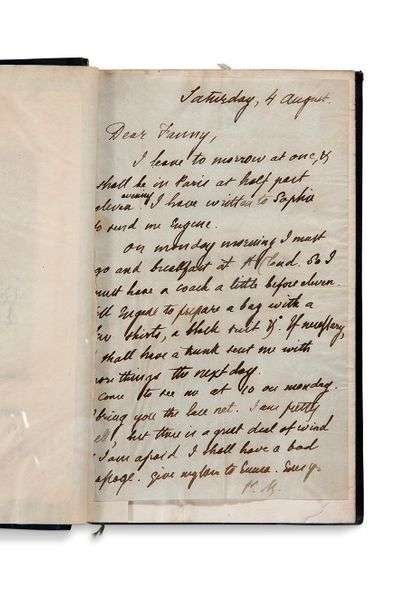 Saturday, 4 August.
Dear Fanny,
I leave to morrow at one, &
shall be in Paris at half past
eleven evening. I have written to Sophie
to send me Eugene.
On monday morning I must
go and breakfast at St Cloud. So I
must have a coach a little before eleven.
Tell Eugene to prepare a bag with a
few shirts, a black suit &c. If necessary,
I shall have a trunk sent me with
more things the next day.
Come to see me at 10 on monday.
I bring you the lace net. I am pretty
well, but there is a great deal of wind
& I am afraid I shall have a bad
passage. Give my love to Emma. Ever yr
P. M.